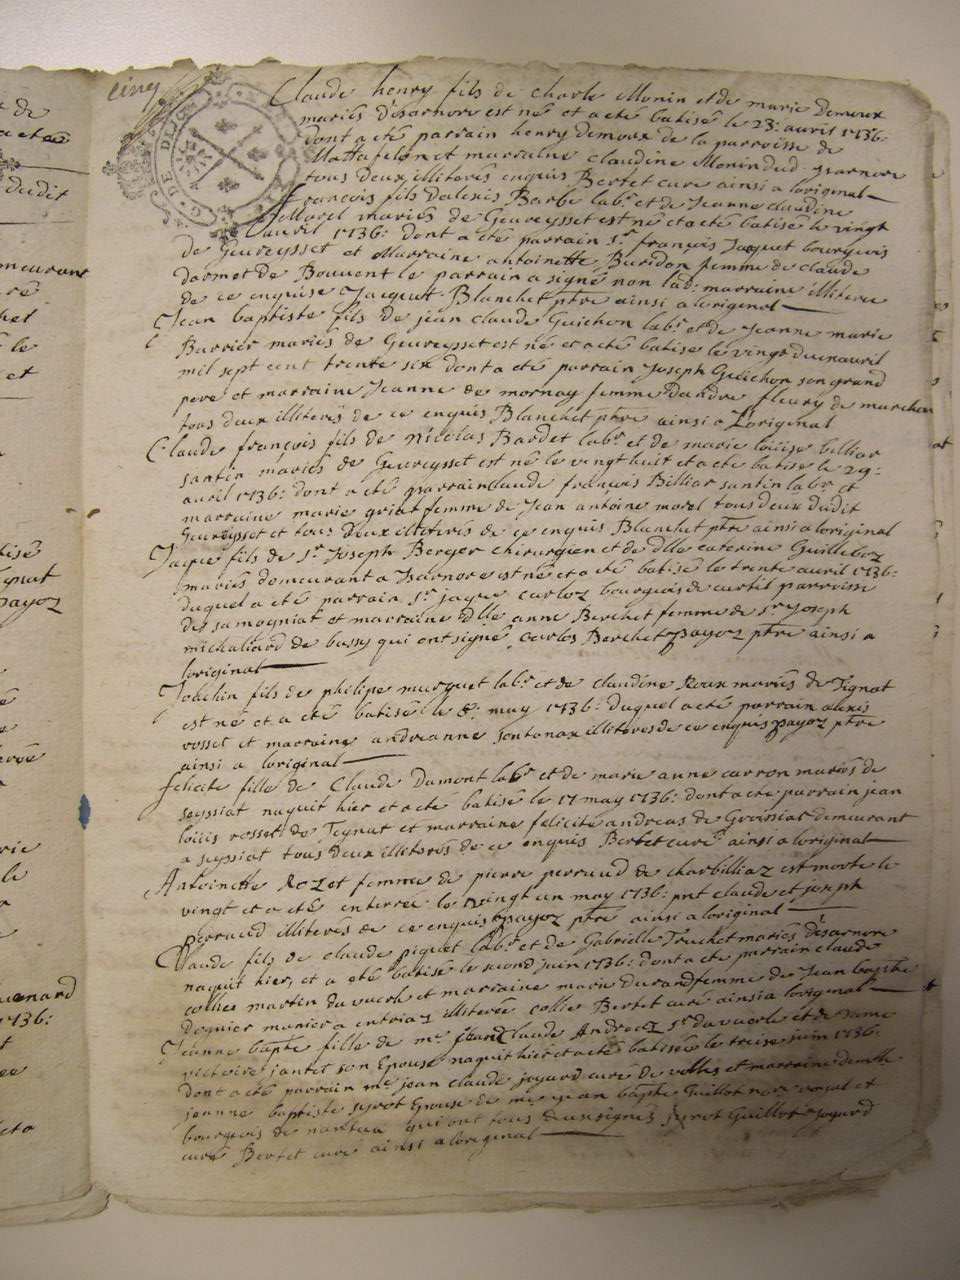 cinq
Claude henry fils de Charle Monin et de marie demoux
mariés d'isarnore est né et a eté batisé le 23: avril 1736:
dont a eté parrain henry demoux de la parroisse de
Mattafelon et marraine claudine Monin dud. ysarnore
tous deux illiterés enquis Bertet curé ainsi a loriginal
francois fils dalexis Barbe labr et de Jeanne claudine
Morel mariés de Geuveysset est né et a eté batisé le vingt
avril 1736: dont a eté parrain Sr. françois Jaquet bourgeois
de Geuveysset et Marraine antoinette Buridon femme de claude
darmet de Bouvent le parrain a signé non lad: marraine illiterée
de ce enquise Jacquet Blanchet ptre ainsi a loriginal
Jean baptiste fils de jean claude Guichon labr et de Jeanne marie
Burrier mariés de Geuveysset est né et a eté batisé le vingt deux avril
mil sept cent trente six dont a eté parrain Joseph Guichon son grand
pere et marraine Jeanne de mornay femme dandré fleury de marchon
tous deux illiterés de ce enquis Blanchet ptre ainsi a Loriginal
Claude françois fils de Nicolas Bardet labr et de marie loüise billiar
santin mariés de Geuveysset est né le vingt huit et a eté batisé le 29:
avril 1736: dont a eté parrain claude françois Billiar santin labr et
marraine marie griat femme de Jean antoine morel tous deux dudit
Geuveysset et tous deux illiterés de ce enquis Blanchet ptre ainsi a loriginal
Jaque fils de Sr. Joseph Berger chirurgien et de dlle caterine Guilleboz
mariés demeurant a Isarnore est né et a eté batisé le trente avril 1736:
duquel a eté parrain Sr. jaque carloz bourgeois de curtil parroisse
de samogniat et marraine dlle anne Berchet femme de Sr. Joseph
michaliard de bussy qui ont signé carlos Berchet payoz ptre ainsi a
loriginal
Joachin fils de philipe murquet labr et de claudine Roux mariés de Tignat
est né et a eté batisé le 8: may 1736: duquel a eté parrain alexis
rosset et marraine andreanne fontanax illiterés de ce enquis payoz ptre
ainsi a loriginal
felicite fille de Claude Dumont labr et de marie anne carron mariés de
seyssiat naquit hier et a eté batisé le 17 may 1736: dont a eté parrain jean
loüis rosset de Tignat et marraine felicité andreas de Groissiat demeurant
a seyssiat tous deux illiterés de ce enquis Bertet curé ainsi a loriginal
Antoinette Rozet femme de pierre perraud de charbilliaz est morte le
vingt et a eté enterrée le vingt un may 1736: pnt claude et joseph
perraud illiterés de ce enquis payoz ptre ainsi a loriginal
Claude fils de claude piquet labr et de Gabrielle Truchet mariés d'isarnore
naquit hier, et a eté batisé le second juin 1736: dont a eté parrain claude
collies martin du vuerle et marraine marie durand femme de Jean baptiste
dognier munier a intriaz illiterée collie Bertet curé ainsi a loriginal
Jeanne bapte fille de mr. jean claude Andrea Sr. du vuerle et de dame
victoire jantet son Epouse naquit hier et a eté batisée le treise juin 1736:
dont a eté parrain mr. jean claude joyard curé de volles et marraine demlle
jeanne baptiste syrot epouse de mr. jean bapte Guillot nore royal et
bourgeois de nantua qui ont tous deux signez syrot Guillot Joyard
curé Bertet curé ainsi a loriginal